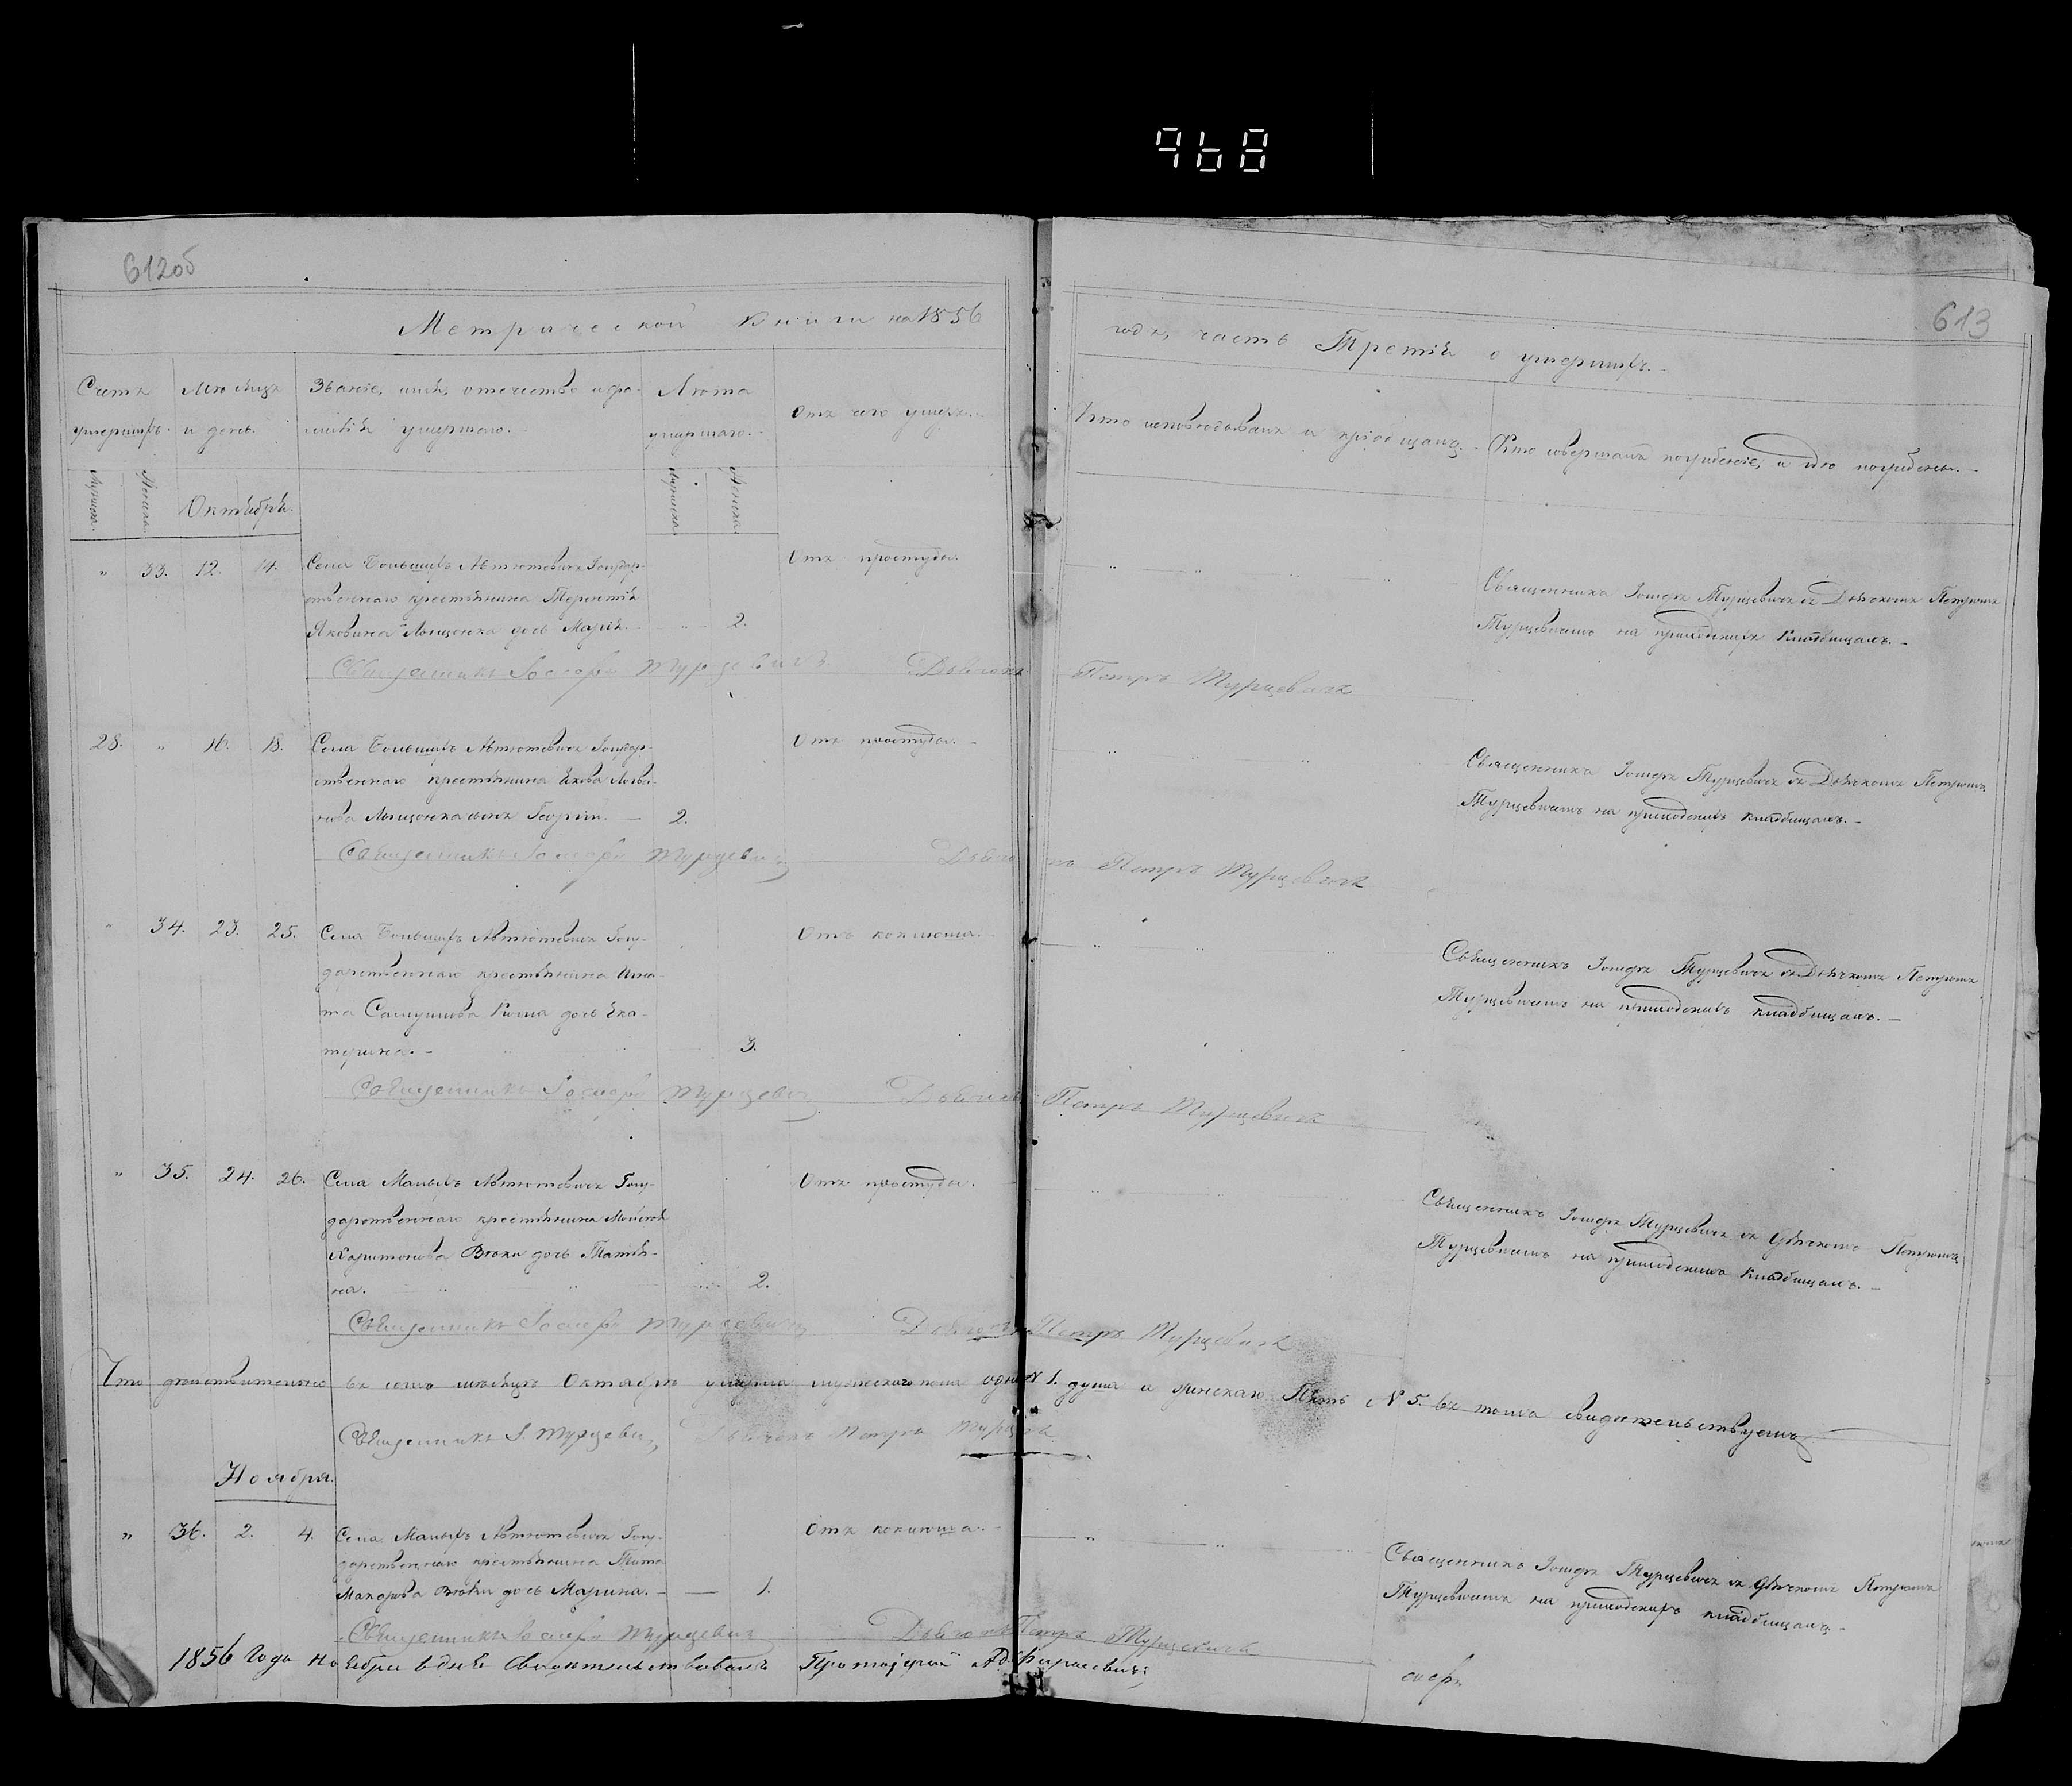 968
612об
613
Метрической книги на 1856
годъ, часть Третія о умершихъ.
Счетъ умершихъ.
Мѣсяцъ и день.
Званіе, имя, отчество и фа-
милія умершаго.
Лѣта умершаго.
Отъ чего умеръ.
Кто исповѣдывалъ и пріобщалъ.
Кто совершалъ погребеніе, и гдѣ погребены.
Мужеска.
Женска.
Октября.
Мужеска.
Женска.
" 33. 12. 14. Села Большихъ Автютевичъ Государ-
ственнаго крестьянина Терентія
Яковина дочь Марія. 2.
Отъ простуды.
Священникъ Іосифъ Турцевичъ съ Дьячкомъ Петромъ
Турцевичемъ на приходскихъ кладбищахъ.
Священникъ Іосифъ Турцевичъ Дьячокъ Петръ Турцевичъ
28. " 16. 18. Села Большихъ Автютевичъ Государ-
ственнаго крестьянина
сынъ Георгій. 2.
Отъ простуды.
Священникъ Іосифъ Турцевичъ съ Дьячкомъ Петромъ
Турцевичемъ на приходскихъ кладбищахъ.
Священникъ Іосифъ Турцевичъ Дьячокъ Петръ Турцевичъ
" 34. 23. 25. Села Большихъ Автютевичъ Госу-
дарственнаго крестьянина Игна-
та Самуилова дочь Ека-
терина. 3.
Отъ коклюша.
Священникъ Іосифъ Турцевичъ съ Дьячкомъ Петромъ
Турцевичемъ на приходскихъ кладбищахъ.
Священникъ Іосифъ Турцевичъ Дьячокъ Петръ Турцевичъ
" 35. 24. 26. Села Малыхъ Автютевичъ Госу-
дарственнаго крестьянина Моисея
Харитонова дочь Татія-
на. 2.
Отъ простуды.
Священникъ Іосифъ Турцевичъ съ Дьячкомъ Петромъ
Турцевичемъ на приходскихъ кладбищахъ.
Священникъ Іосифъ Турцевичъ Дьячокъ Петръ Турцевичъ
Что дѣйствительно въ семъ мѣсяцѣ Октябрѣ умерла мужескаго пола одна № 1. душа а женскаго Пять № 5. въ томъ свидѣтельствуемъ
Священникъ І. Турцевичъ Дьячокъ Петръ Турцевичъ
Ноября.
" 36. 2. 4. Села Малыхъ Автютевичъ Госу-
дарственнаго крестьянина Тита
Макарова дочь Марина. 1.
Отъ коклюша.
Священникъ Іосифъ Турцевичъ съ Дьячкомъ Петромъ
Турцевичемъ на приходскихъ кладбищахъ.
Священникъ Іосифъ Турцевичъ Дьячокъ Петръ Турцевичъ
1856 Года Ноября 6 дня Свидѣтельствовалъ Протоіерей